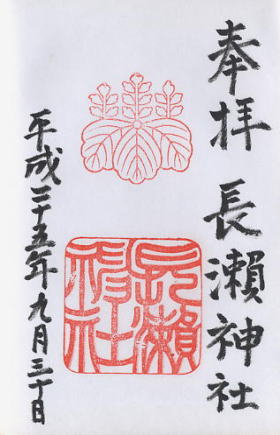 奉拝 長瀬神社
長瀬神社
平成二十五年九月三十日